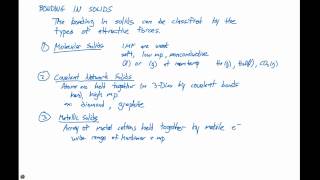 BONDING IN SOLIDS
The bonding in solids can be classified by the
types of attractive forces.
① Molecular Solids
IMF are weak
soft, low mp, nonconductive
(l) or (g) at room temp
② Covalent Network Solids
Atoms are held together in 3-Dim by covalent bonds
hard, high mp
ex diamond, graphite
③ Metallic Solids
Array of metal cations held together by mobile e⁻
wide range of hardness + mp